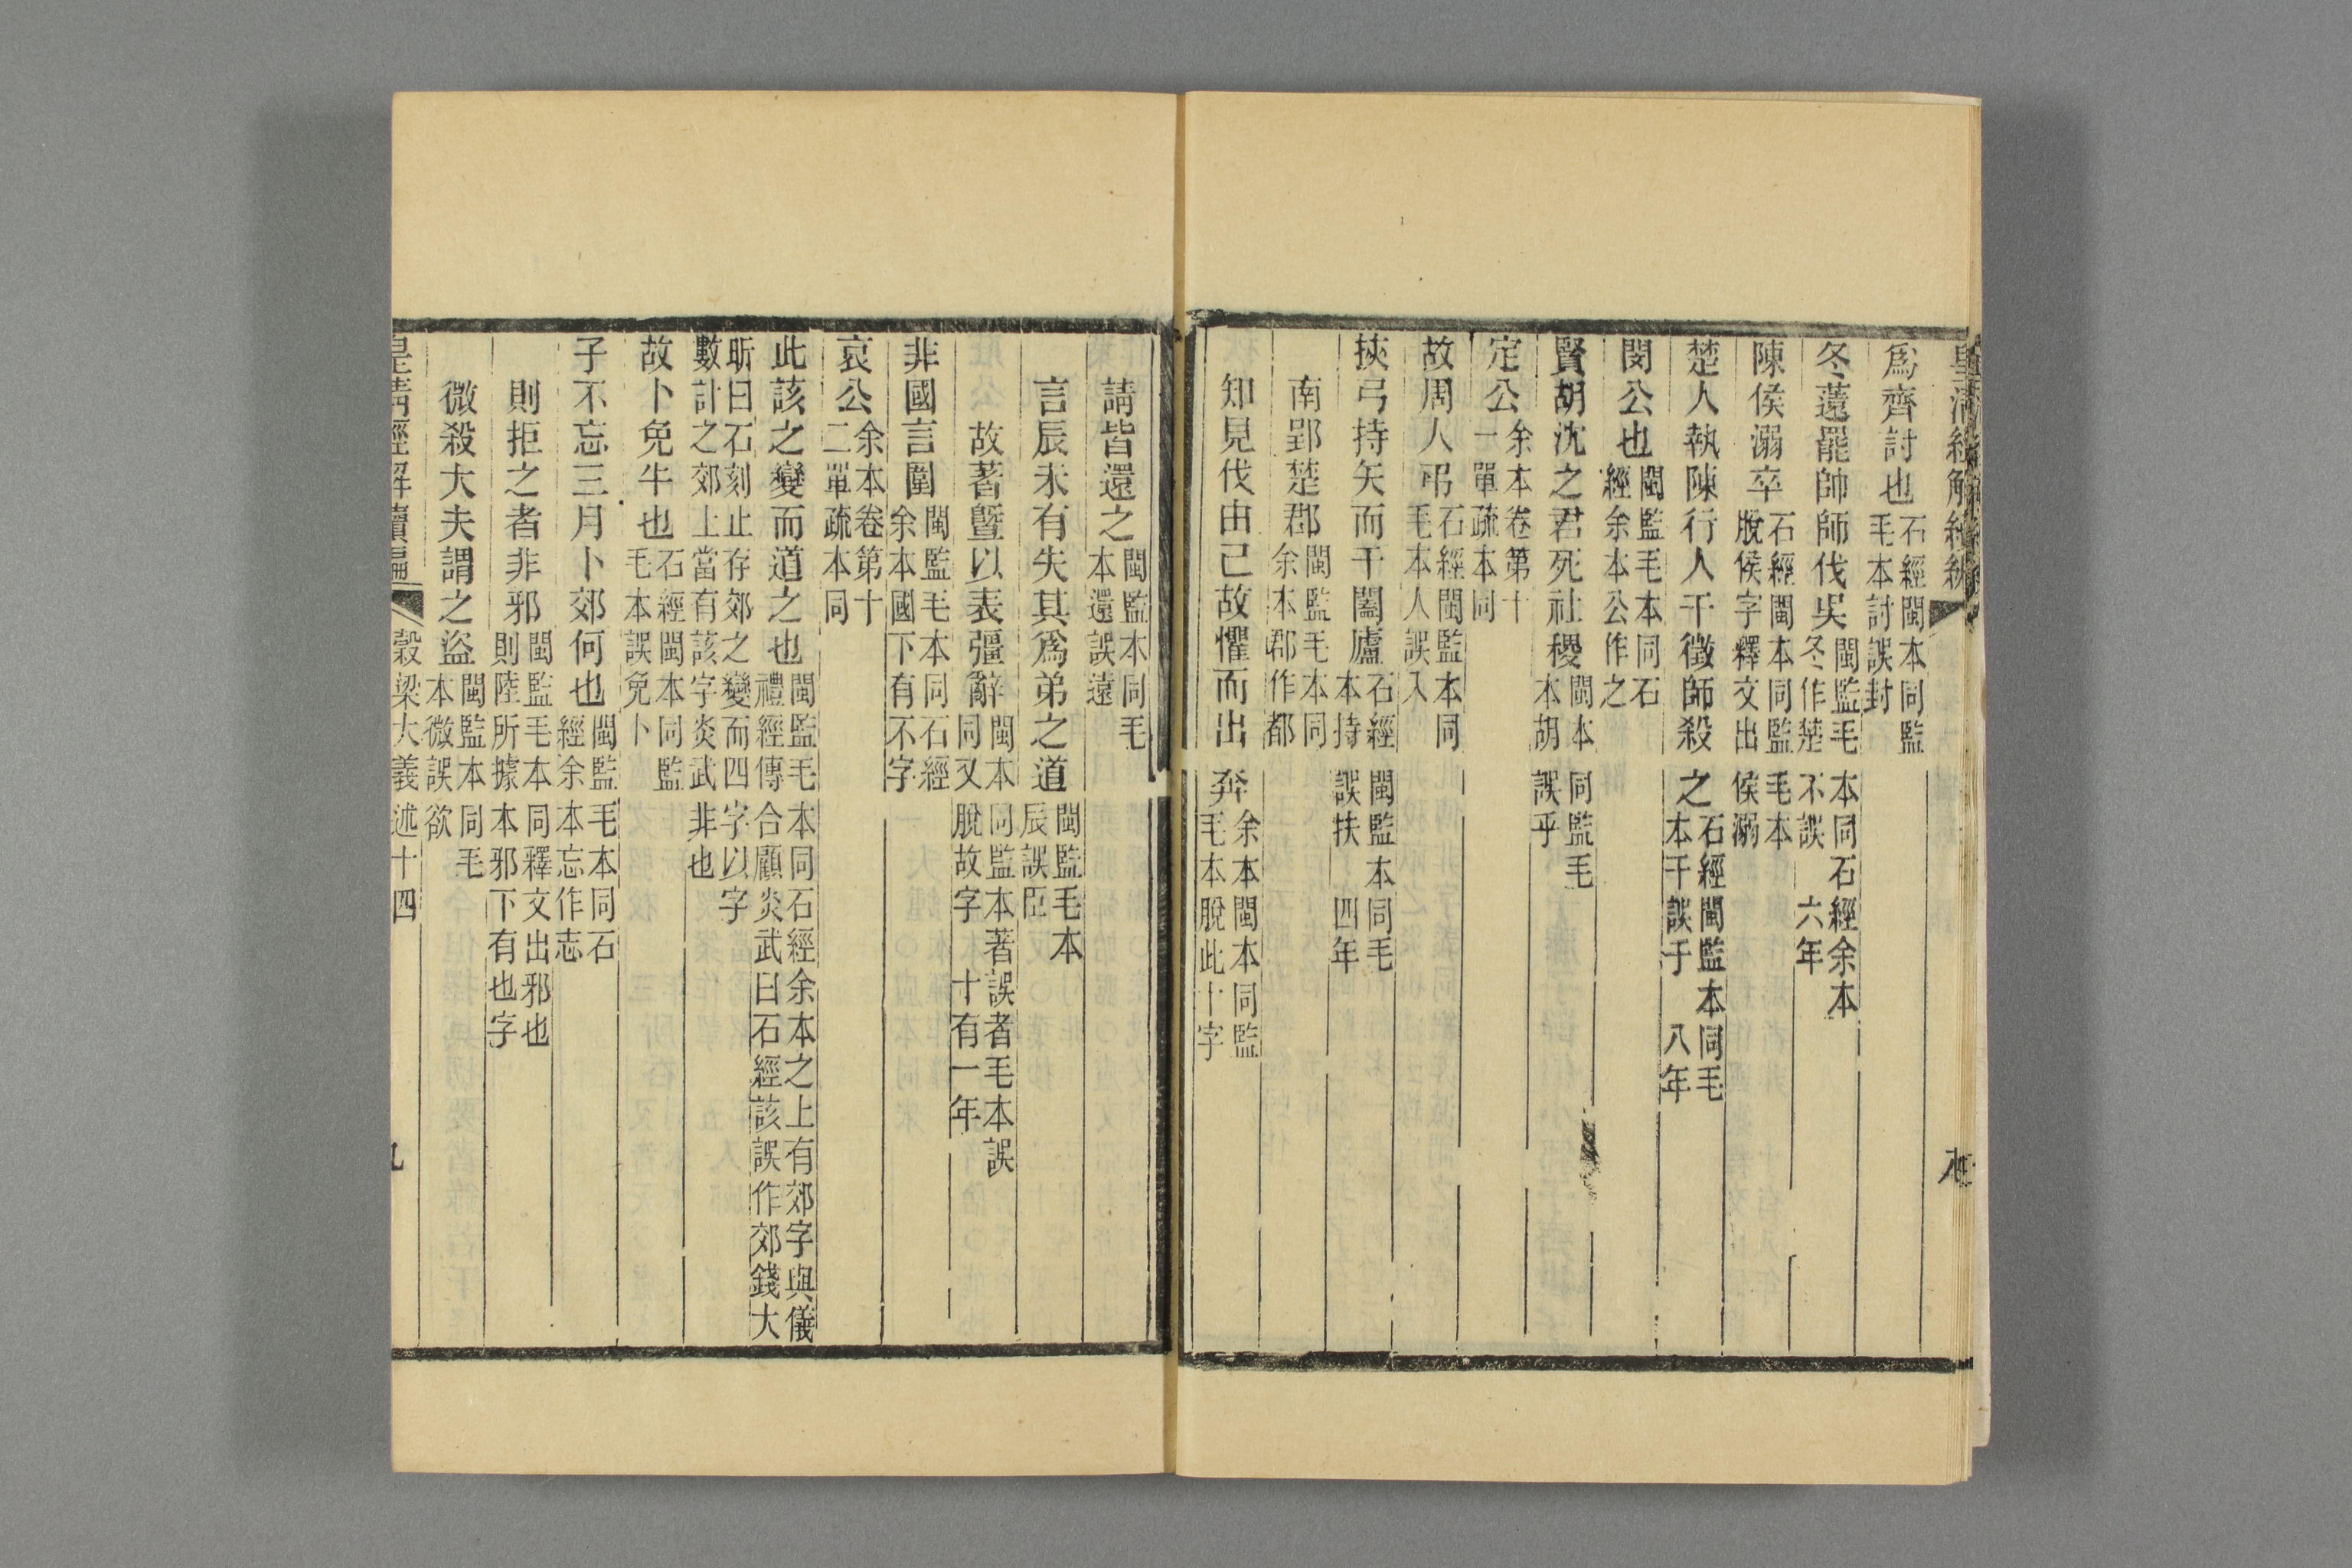 皇清經解續編
爲齊討也石經閩本同監毛本討誤封
冬薳罷帥師伐吳閩監毛本同石經余本冬作楚不誤 六年
陳侯溺卒石經閩本同監毛本脫侯字釋文出侯溺
楚人執陳行人干徵師殺之石經閩監本同毛本干誤于 八年
閔公也閩監毛本同石經余本公作之
賢胡沈之君死社稷閩本同監毛本胡誤乎
定公余本卷第十一單疏本同
故周人弔石經閩監本同毛本人誤入
挾弓持矢而干闔廬石經閩監本同毛本持誤扶 四年
南郢楚郡閩監毛本同余本郡作都
知見伐由己故懼而出奔余本閩本同監毛本脫此十字
請皆還之閩監本同毛本還誤遠
言辰未有失其爲弟之道閩監毛本辰誤臣
故著曁以表彊辭閩本同監本著誤者毛本誤同又脫故字 十有一年
非國言圍閩監毛本同石經余本國下有不字
哀公余本卷第十二單疏本同
此該之變而道之也閩監毛本同石經余本之上有郊字與儀禮經傳合顧炎武曰石經該誤作郊錢大
昕曰石刻止存郊之變而四字以字數計之郊上當有該字炎武非也
故卜免牛也石經閩本同監毛本誤免卜
子不忘三月卜郊何也閩監毛本同石經余本忘作志
則拒之者非邪閩監毛本同釋文出邪也則陸所據本邪下有也字
微殺大夫謂之盜閩監本同毛本微誤欲
皇清經解續編 穀梁大義述十四 九